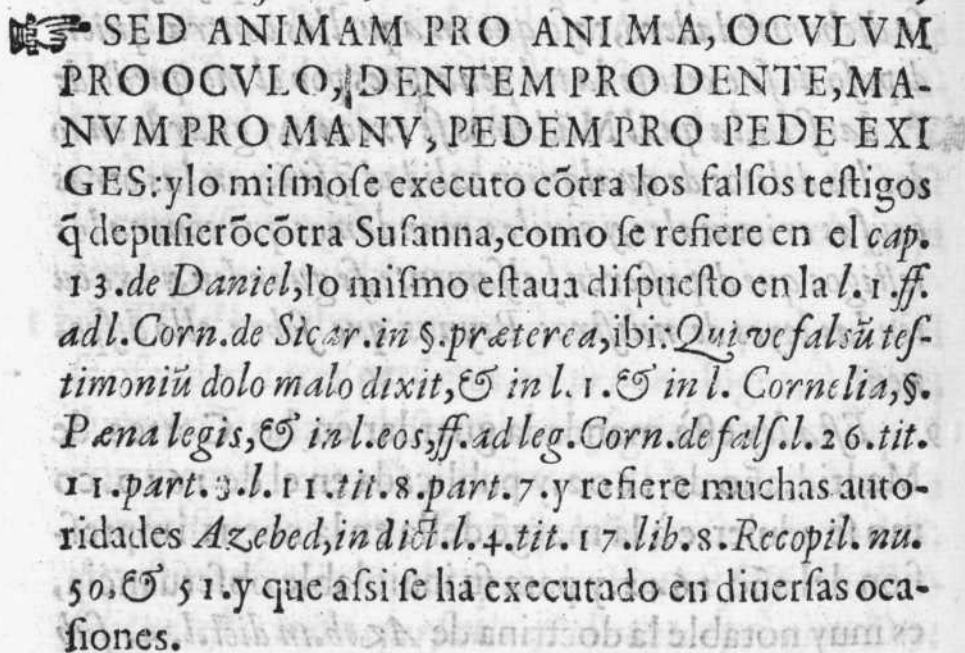 ☞ SED ANIMAM PRO ANIMA, OCVLVM
PRO OCVLO, DENTEM PRO DENTE, MA-
NVM PRO MANV, PEDEM PRO PEDE EXI
GES: ylo miſmoſe executo cõtra los falſos teſtigos
q̃ depuſierõcõtra Suſanna,como ſe refiere en el cap.
13.de Daniel,lo miſmo eſtaua diſpueſto en la l. 1.ff.
ad l.Corn.de Sicar.in §.præterea,ibi:Qui ve falsũ teſ-
timoniũ dolo malo dixit,& in l. 1.& in l. Cornelia,§.
Pæna legis,& in l.eos,ff.ad leg.Corn.de falſ.l.26.tit.
11.part.3.l.11.tit.8.part.7.y refiere muchas auto-
ridades Azebed,in dict.l.4.tit.17.lib.8.Recopil.nu.
50.& 51.y que aſsi ſe ha executado en diuerſas oca-
ſiones.